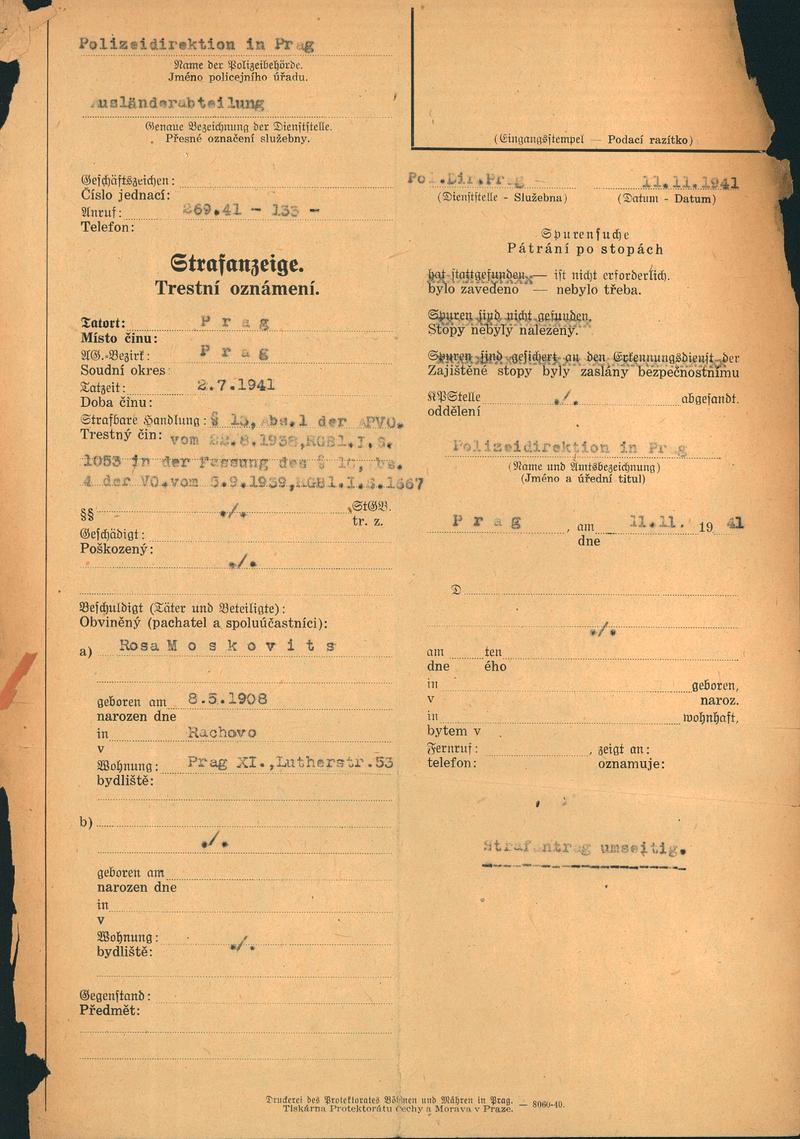 Polizeidirektion in Prag
Name der Polizeibehörde.
Jméno policejního úřadu.
usländerabteilung
Genaue Bezeichnung der Dienststelle.
Přesné označení služebny.
(Eingangsstempel — Podací razítko)
Geschäftszeichen:
Číslo jednací:
Anruf: 269.41 - 133 -
Telefon:
Strafanzeige.
Trestní oznámení.
Tatort: Prag
Místo činu:
AG.-Bezirk: Prag
Soudní okres:
Tatzeit: 2.7.1941
Doba činu:
Strafbare Handlung: § 15, Abs.1 der APVO.
Trestný čin: vom 22.8.1938,RGBl.I.S.
1053 in der Fassung des § 10, bs.
4 der VO.vom 5.9.1939,RGBl.I.S.1667
§§ ./. StGB.
tr. z.
Geschädigt:
Poškozený:
./.
Beschuldigt (Täter und Beteiligte):
Obviněný (pachatel a spoluúčastníci):
a) Rosa Moskovits
geboren am 8.5.1908
narozen dne
in Rachovo
v
Wohnung: Prag XI.,Lutherstr.53
bydliště:
b)
./.
geboren am
narozen dne
in
v
Wohnung: ./.
bydliště:
Gegenstand:
Předmět:
Pol.Dir.Prag 11.11.1941
(Dienststelle - Služebna) (Datum - Datum)
Spurensuche
Pátrání po stopách
hat stattgefunden — ist nicht erforderlich.
bylo zavedeno — nebylo třeba.
Spuren sind nicht gefunden.
Stopy nebyly nalezeny.
Spuren sind gesichert an den Erkennungsdienst der
Zajištěné stopy byly zaslány bezpečnostnímu
KPStelle ./. abgesandt.
oddělení
Polizeidirektion in Prag
(Name und Amtsbezeichnung)
(Jméno a úřední titul)
Prag, am 11.11. 19 41
dne
D
./.
am ten
dne ého
in geboren,
v naroz.
in wohnhaft,
bytem v
Fernruf: , zeigt an:
telefon: oznamuje:
Strafantrag umseitig.
Druckerei des Protektorates Böhmen und Mähren in Prag. — 8060-40.
Tiskárna Protektorátu Čechy a Morava v Praze.